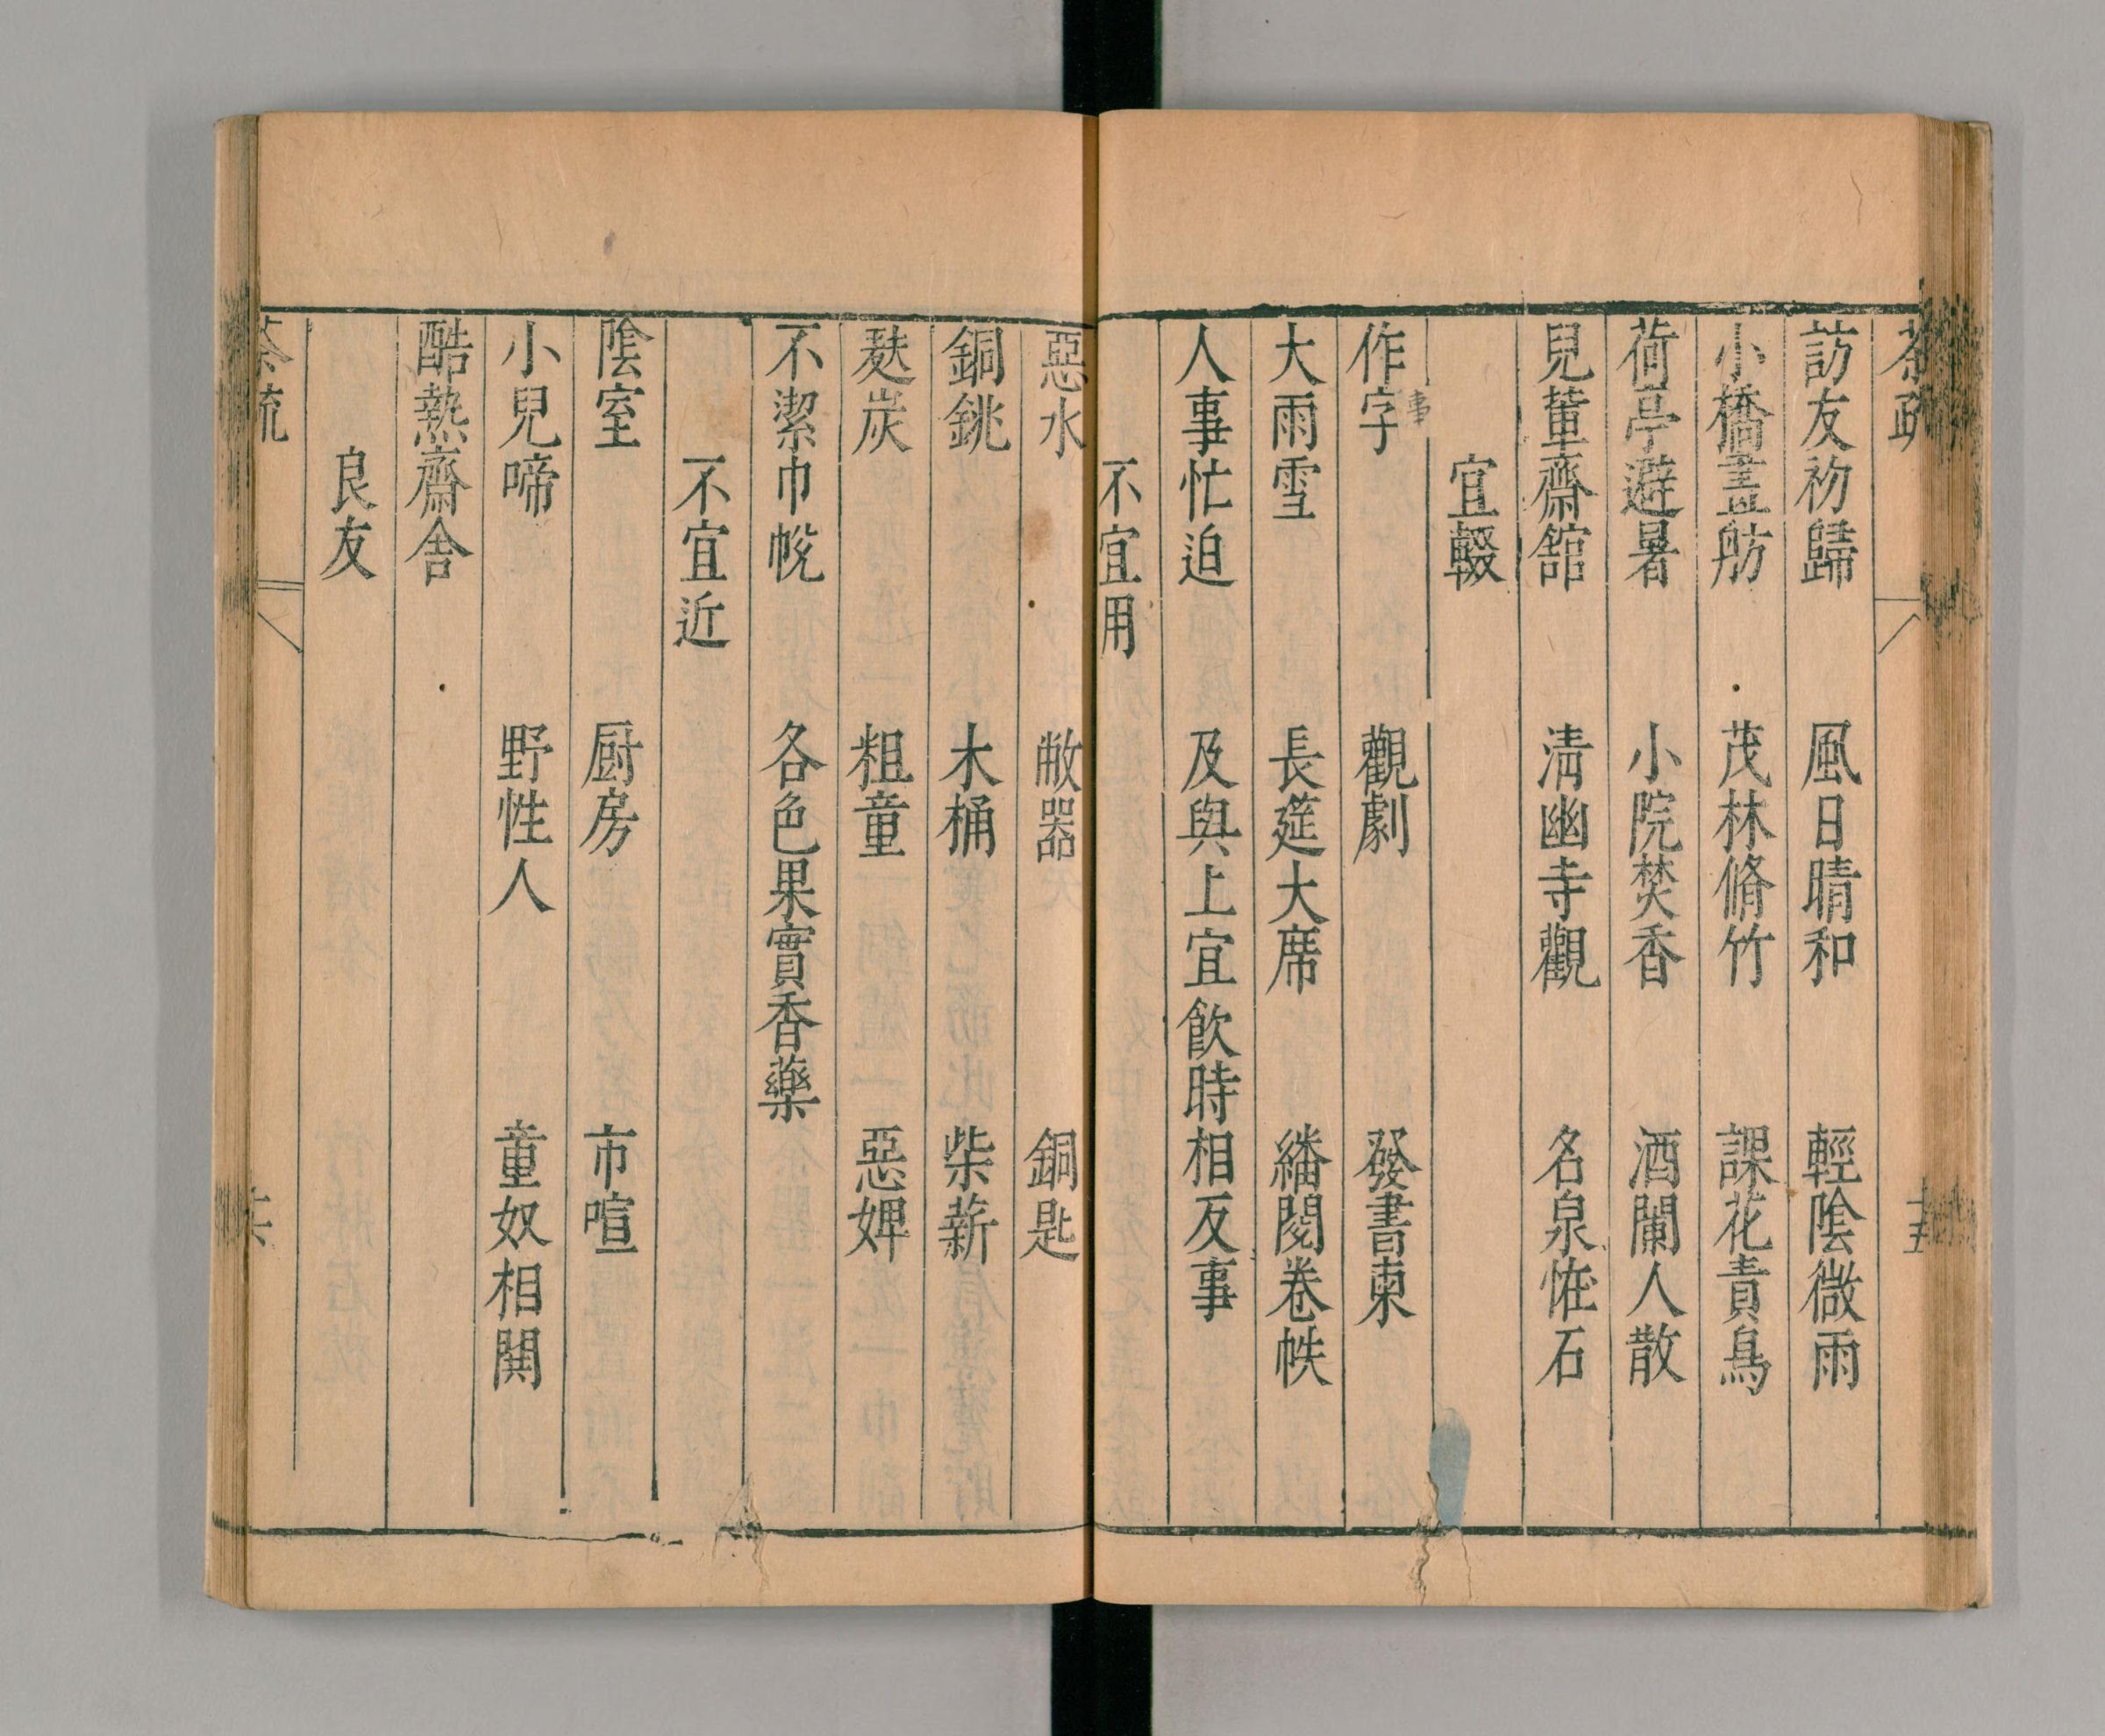 茶疏 十五
訪友初歸 風日晴和 輕陰微雨
小橋畫舫 茂林脩竹 課花責鳥
荷亭避暑 小院焚香 酒闌人散
兒軰齋舘 清幽寺觀 名泉恠石
宜輟
作字 觀劇 發書柬
事
大雨雪 長筵大席 繙閱卷帙
人事忙迫 及與上宜飲時相反事
不宜用
惡水 敝器 銅匙
銅銚 木桶 柴薪
麩炭 粗童 惡婢
不潔巾帨 各色果實香藥
不宜近
陰室 厨房 市喧
小兒啼 野性人 童奴相鬨
酷熱齋舍
良友
茶疏